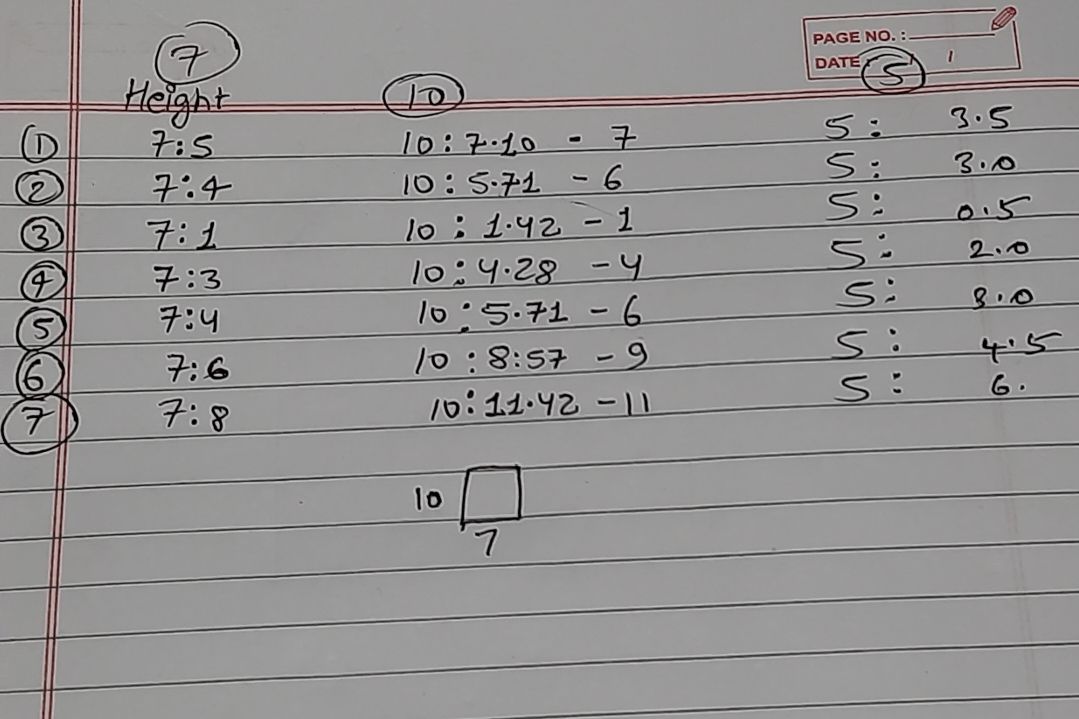 7
PAGE NO. :
DATE 5 1
Height 10
① 7:5 10:7.10 - 7 5: 3.5
② 7:4 10:5.71 - 6 5: 3.0
③ 7:1 10:1.42 - 1 5: 0.5
④ 7:3 10:4.28 - 4 5: 2.0
⑤ 7:4 10:5.71 - 6 5: 3.0
⑥ 7:6 10:8:57 - 9 5: 4.5
⑦ 7:8 10:11.42 - 11 5: 6.
10
7